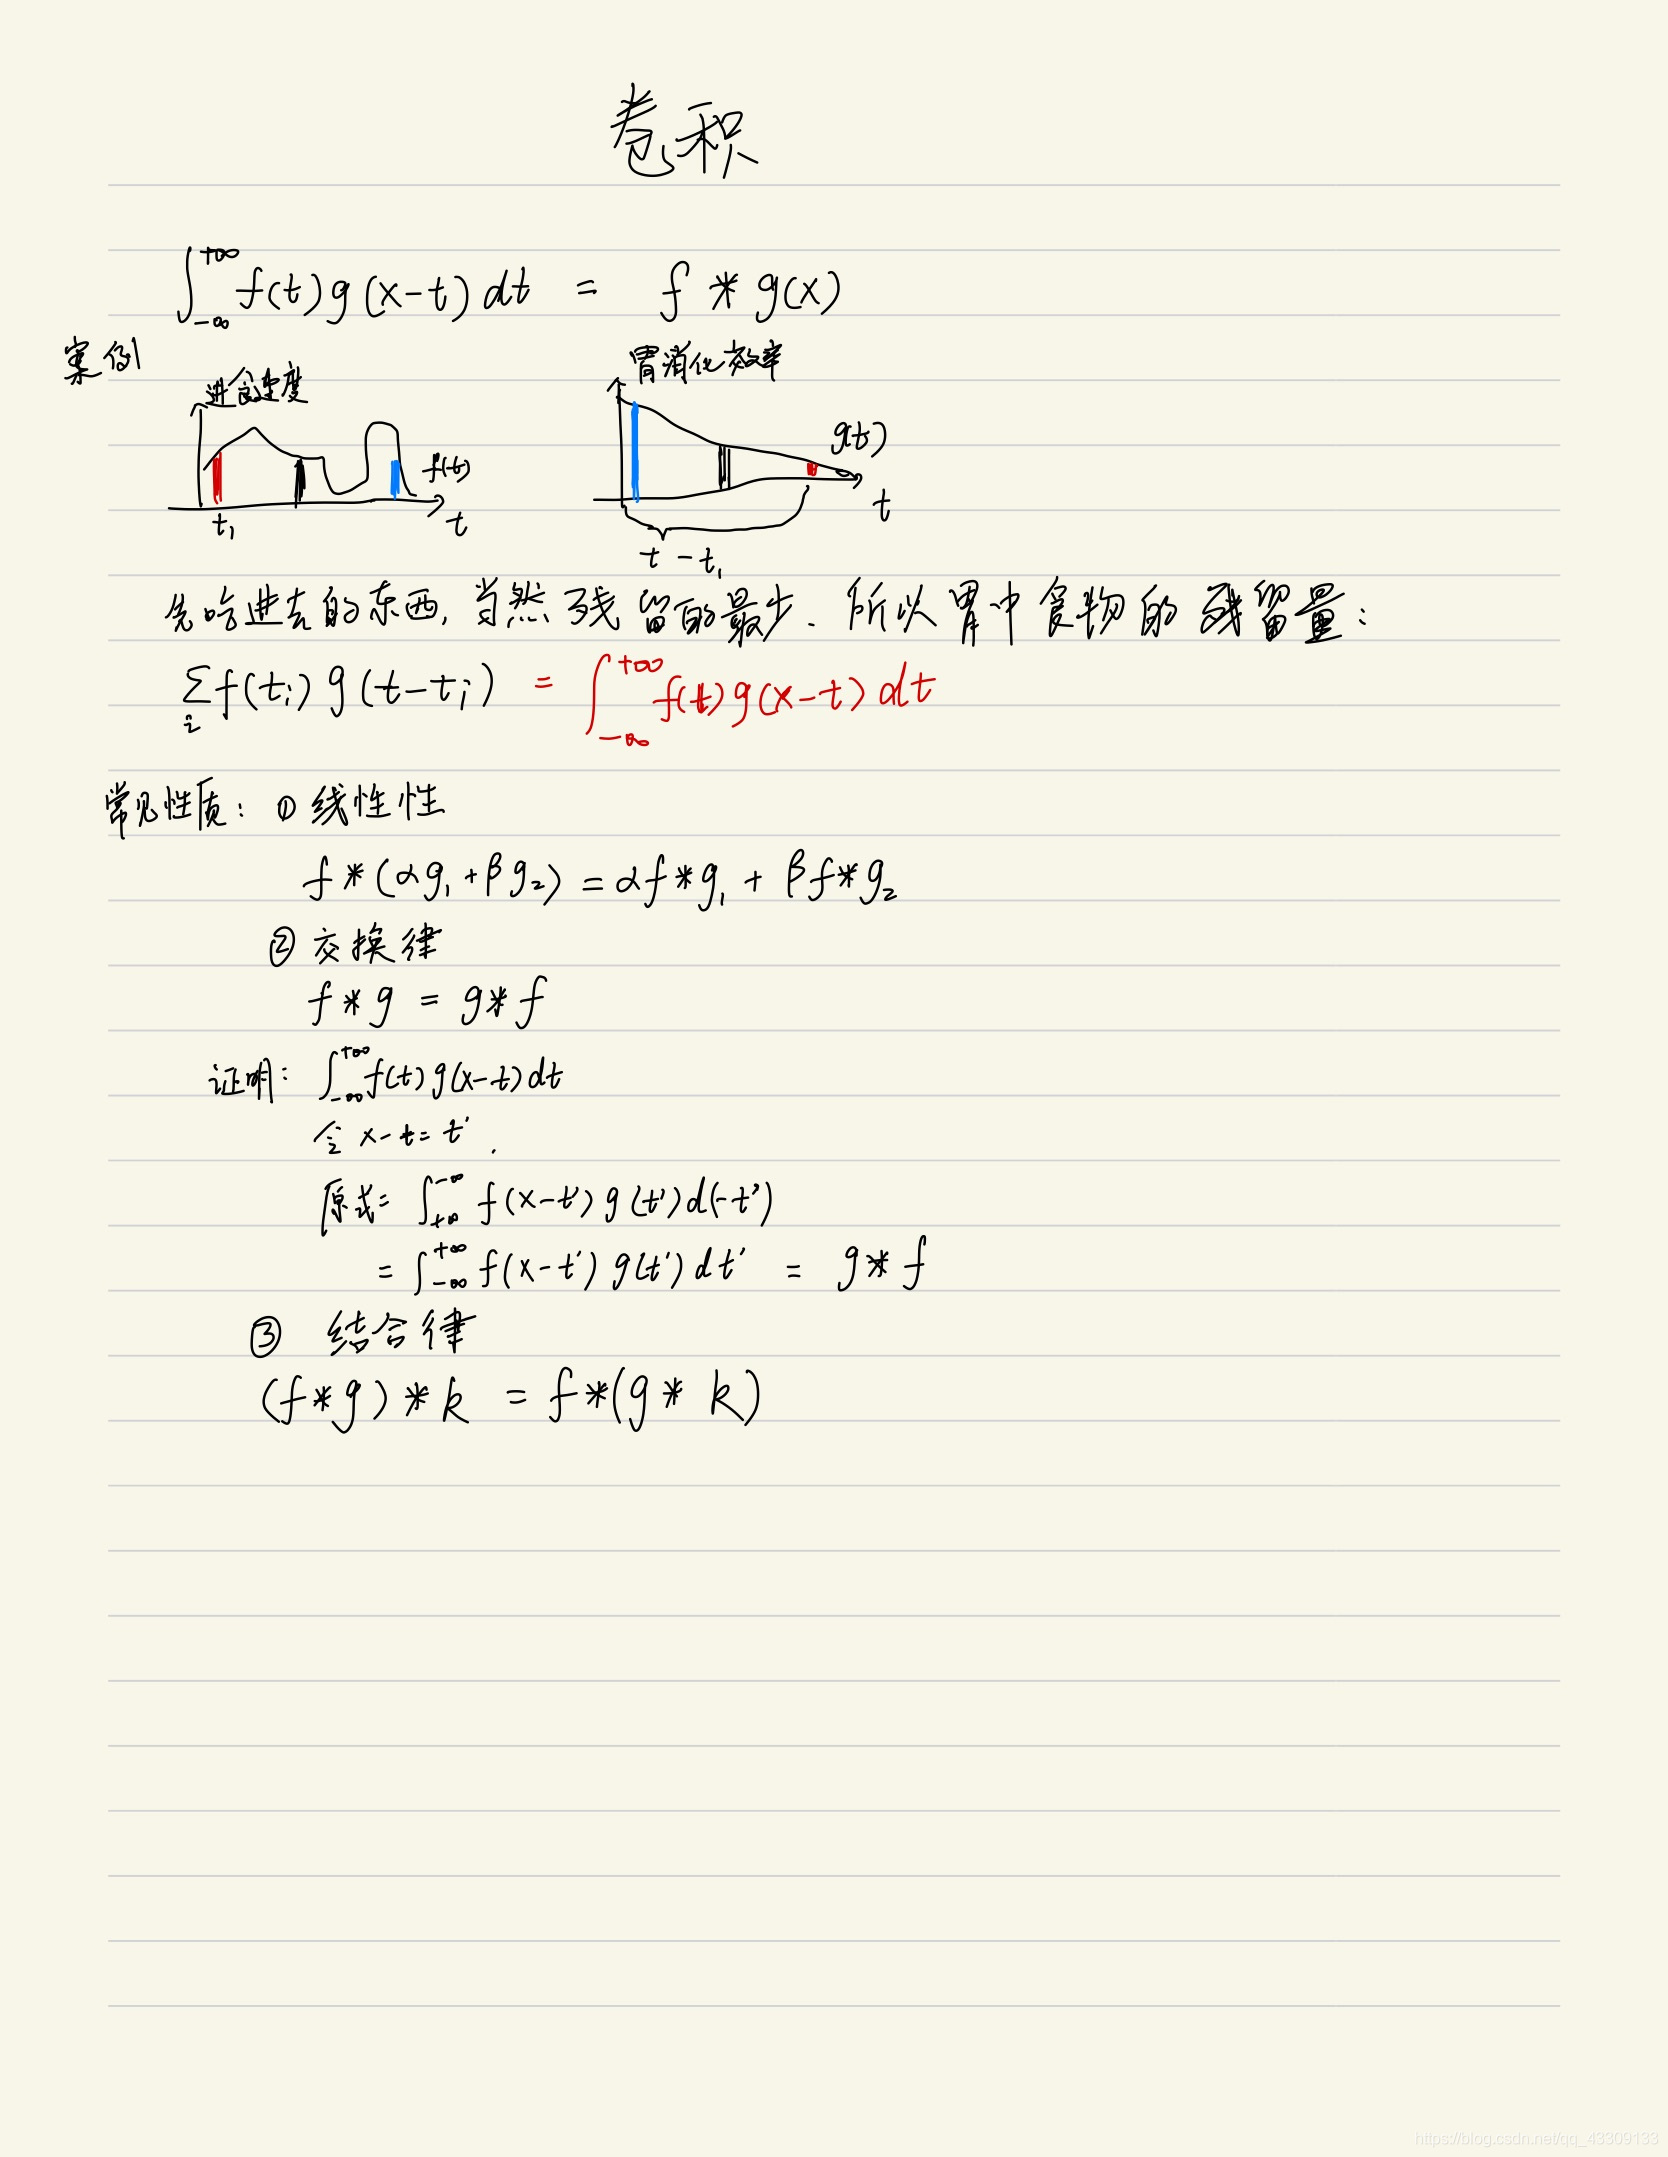 卷积
∫_{-∞}^{+∞} f(t) g(x-t) dt = f * g(x)
案例
进食速度
f(t)
t₁
t
胃消化效率
g(t)
t
t - t₁
先吃进去的东西, 当然残留的最少. 所以胃中食物的残留量:
Σ_i f(t_i) g(t-t_i) = ∫_{-∞}^{+∞} f(t) g(x-t) dt
常见性质: ① 线性性
f * (αg₁ + βg₂) = αf * g₁ + βf * g₂
② 交换律
f * g = g * f
证明: ∫_{-∞}^{+∞} f(t) g(x-t) dt
令 x-t = t' .
原式 = ∫_{+∞}^{-∞} f(x-t') g(t') d(-t')
= ∫_{-∞}^{+∞} f(x-t') g(t') dt' = g * f
③ 结合律
(f * g) * k = f * (g * k)
https://blog.csdn.net/qq_43309133